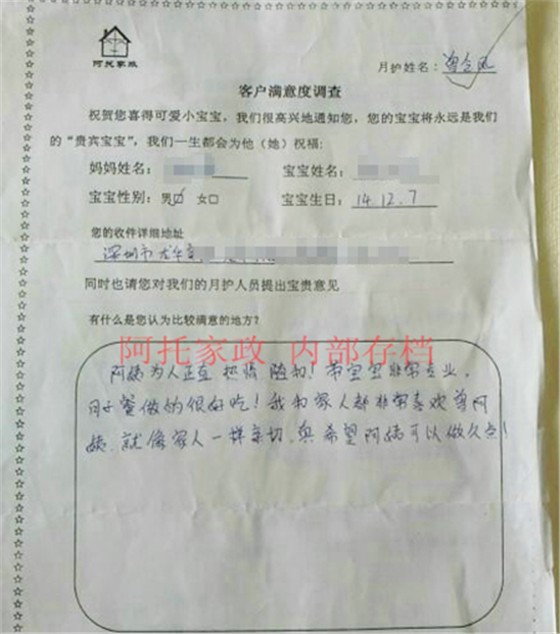 阿托家政
月护姓名：曾令凤
客户满意度调查
祝贺您喜得可爱小宝宝，我们很高兴地通知您，您的宝宝将永远是我们
的“贵宾宝宝”，我们一生都会为他（她）祝福：
妈妈姓名： 宝宝姓名：
宝宝性别：男☑ 女□ 宝宝生日：14.12.7
您的收件详细地址
深圳市龙华
同时也请您对我们的月护人员提出宝贵意见
有什么是您认为比较满意的地方？
阿托家政 内部存档
阿姨为人正直 热情 随和！带宝宝非常专业，
月子餐做的很好吃！我和家人都非常喜欢曾阿
姨，就像家人一样亲切，真希望阿姨可以做久点！